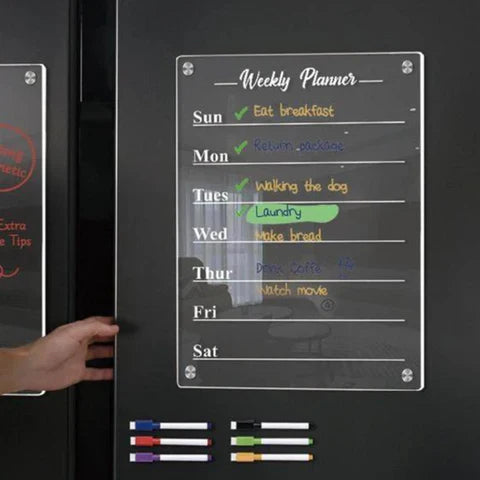 Weekly Planner
Sun ✓ Eat breakfast
Mon ✓ Return package
Tues ✓ Walking the dog
✓ Laundry
Wed Make bread
Thur Drink Coffe
Watch movie
Fri
Sat
Extra
Tips